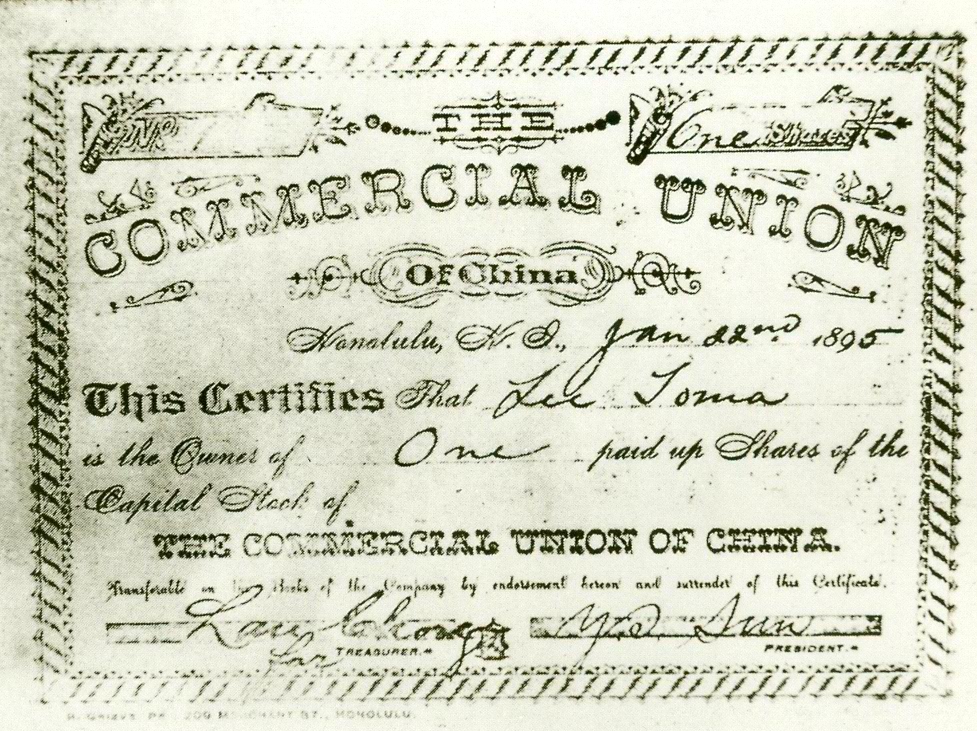 THE
One Shares
COMMERCIAL UNION
Of China
Honolulu, H. I., Jan 22nd 1895
This Certifies That Lee Toma
is the Owner of One paid up Shares of the
Capital Stock of
THE COMMERCIAL UNION OF CHINA.
Transferable on the Books of the Company by endorsement hereon and surrender of this Certificate.
Lau Chong Y. S. Sun
for TREASURER. PRESIDENT.
209 MERCHANT ST., HONOLULU.